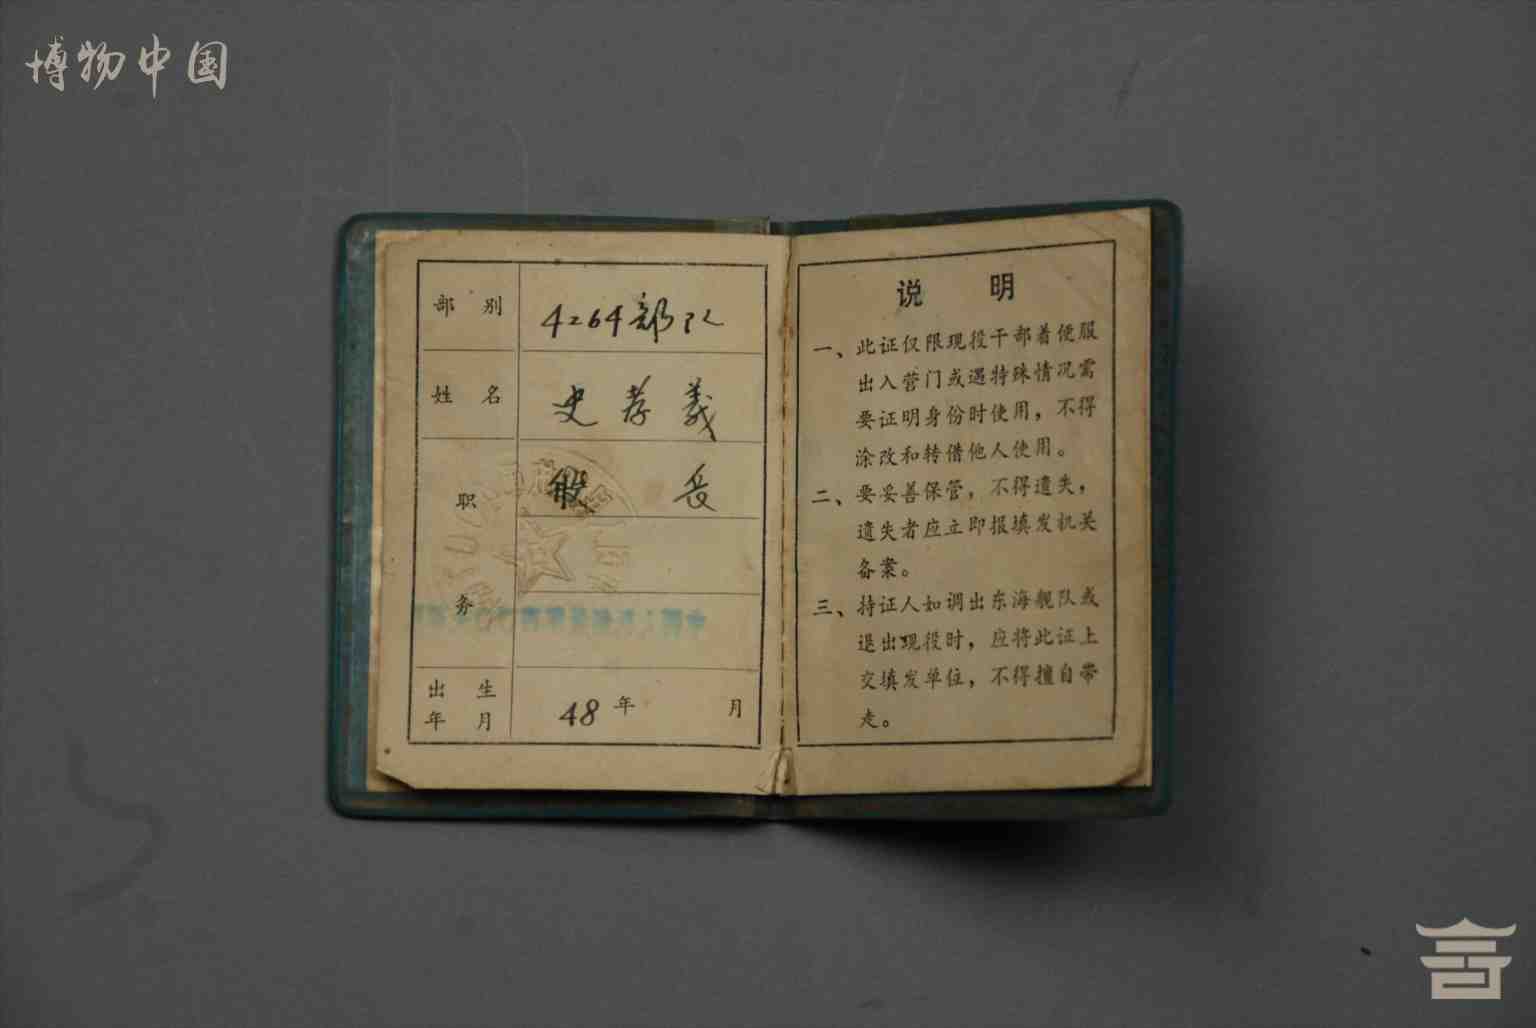 博物中国
部别 4264部队
姓名 史孝义
职务 长
出生年月 48年 月
说 明
一、此证仅限现役干部着便服
出入营门或遇特殊情况需
要证明身份时使用，不得
涂改和转借他人使用。
二、要妥善保管，不得遗失，
遗失者应立即报填发机关
备案。
三、持证人如调出东海舰队或
退出现役时，应将此证上
交填发单位，不得擅自带
走。